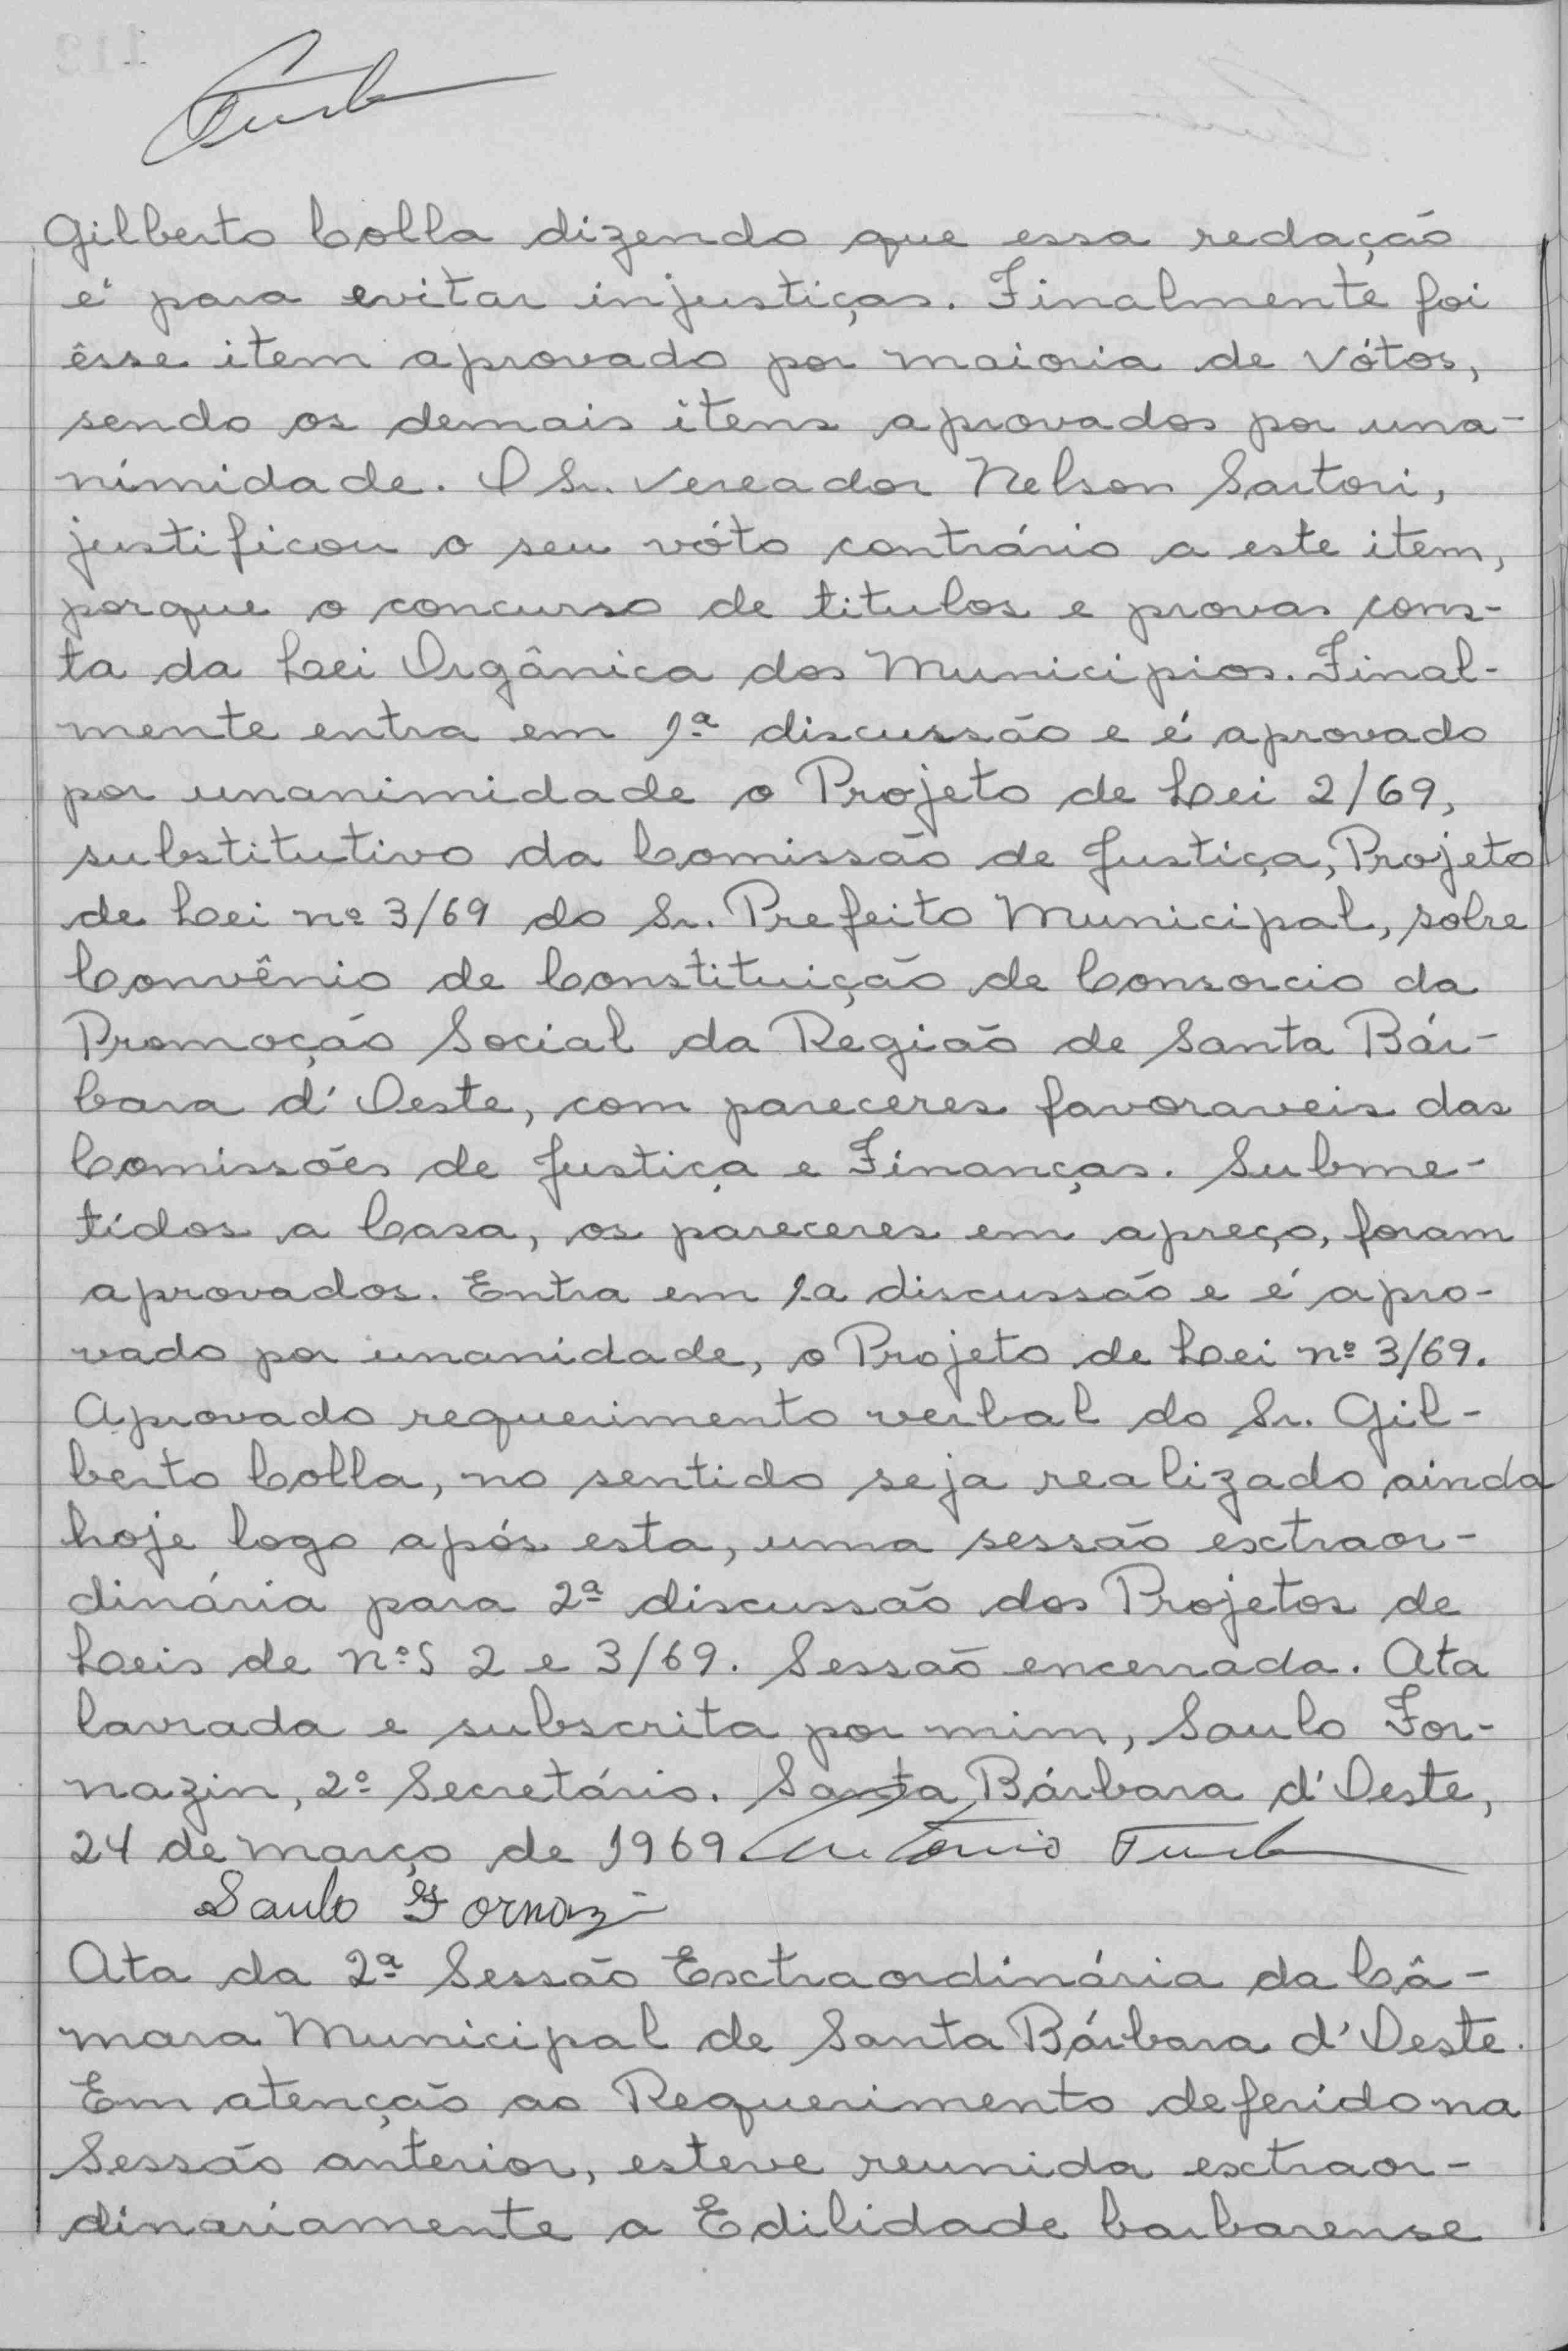 Gilberto Colla dizendo que essa redação
é para evitar injustiças. Finalmente foi
êsse item aprovado por maioria de vótos,
sendo os demais itens aprovados por una-
nimidade. O Sr. Vereador Nelson Sartori,
justificou o seu vóto contrário a este item,
porque o concurso de titulos e provas cons-
ta da Lei Orgânica dos Municipios. Final-
mente entra em 1ª discussão e é aprovado
por unanimidade o Projeto de Lei 2/69,
substitutivo da Comissão de Justiça, Projeto
de Lei nº 3/69 do Sr. Prefeito Municipal, sobre
Convênio de Constituição de Consorcio da
Promoção Social da Região de Santa Bár-
bara d'Oeste, com pareceres favoraveis das
Comissões de Justiça e Finanças. Subme-
tidos a Casa, os pareceres em apreço, foram
aprovados. Entra em 1.a discussão e é apro-
vado por unanidade, o Projeto de Lei nº 3/69.
Aprovado requerimento verbal do Sr. Gil-
berto Colla, no sentido seja realizado ainda
hoje logo após esta, uma sessão extraor-
dinária para 2ª discussão dos Projetos de
Leis de nºs 2 e 3/69. Sessão encerrada. Ata
lavrada e subscrita por mim, Saulo For-
nazin, 2º Secretário. Santa Bárbara d'Oeste,
24 de março de 1969. Antonio
Saulo Fornazin
Ata da 2ª Sessão Extraordinária da Câ-
mara Municipal de Santa Bárbara d'Oeste.
Em atenção ao Requerimento deferido na
Sessão anterior, esteve reunida extraor-
dinariamente a Edilidade barbarense